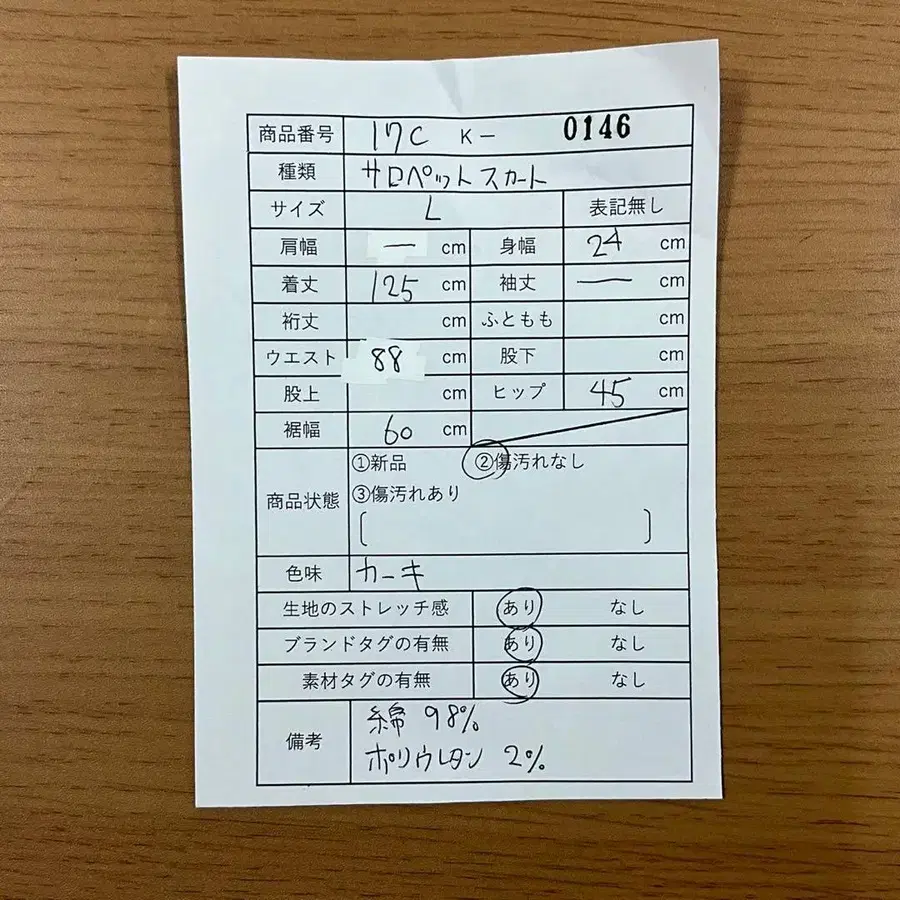 商品番号 17C K- 0146
種類 サロペットスカート
サイズ L 表記無し
肩幅 ー cm 身幅 24 cm
着丈 125 cm 袖丈 ー cm
裄丈 cm ふともも cm
ウエスト 88 cm 股下 cm
股上 cm ヒップ 45 cm
裾幅 60 cm
①新品 ②傷汚れなし
商品状態 ③傷汚れあり
[ ]
色味 カーキ
生地のストレッチ感 あり なし
ブランドタグの有無 あり なし
素材タグの有無 あり なし
備考 綿 98%
ポリウレタン 2%